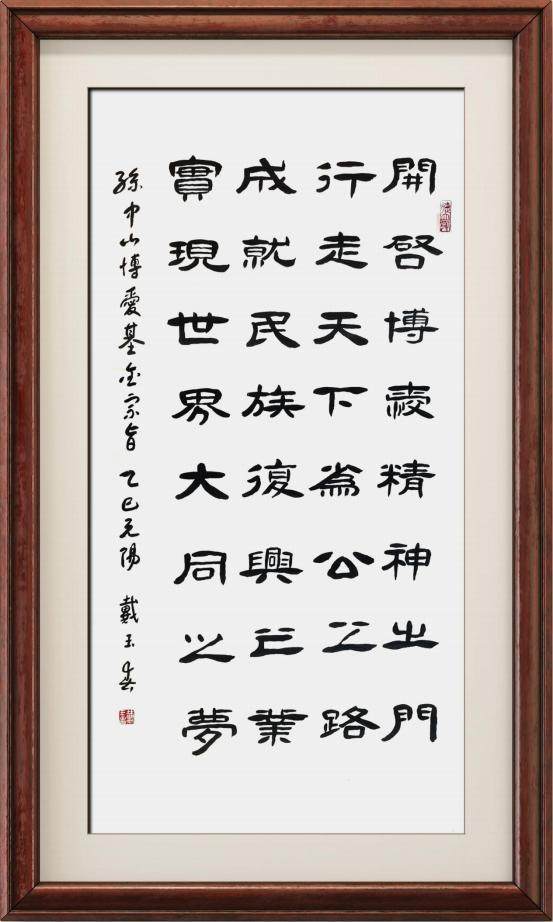 開啓博愛精神之門
行走天下為公之路
成就民族復興之業
實現世界大同之夢
孫中山博愛基金宗旨 乙巳元陽 戴玉春